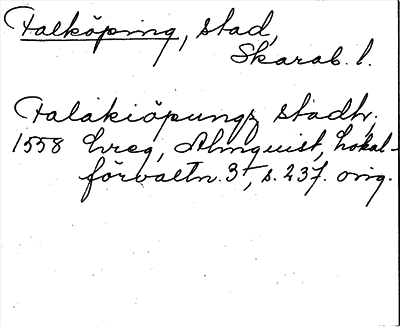 Falköping, stad,
Skarab. l.
Falakiöpungz stadh,
1558 hreg, Almquist, Lokal-
förvaltn. 3, s. 237. orig.